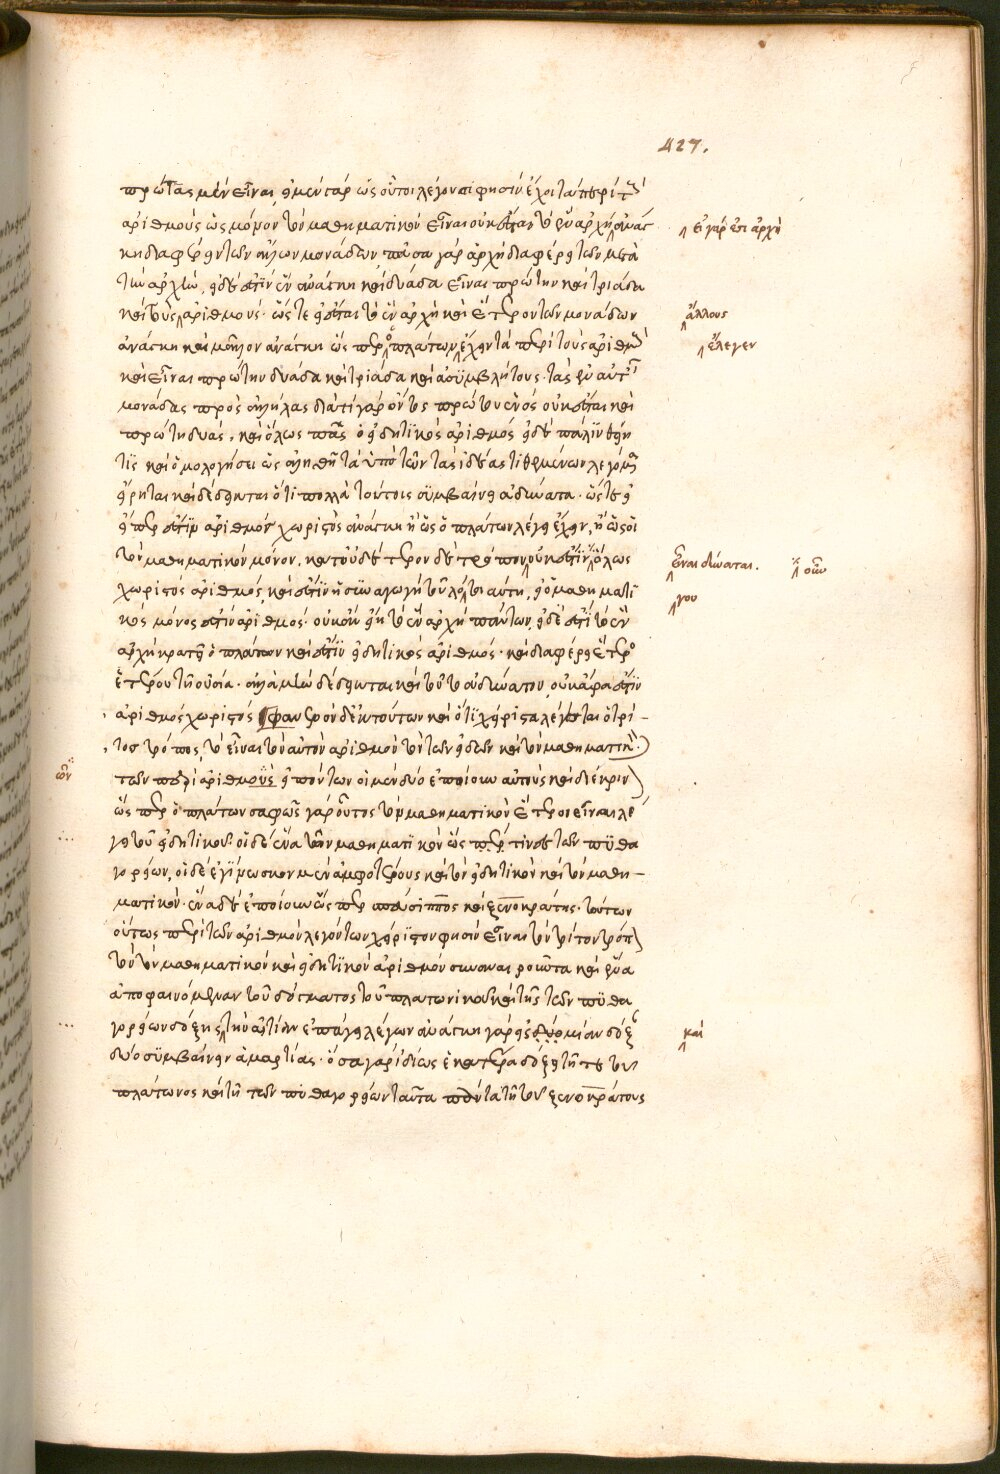 427.
πρώτας μὲν εἶναι, εἰ μὲν γὰρ ὡς οὗτοι λέγουσι φησὶν ἔχοι τὰ περὶ τοὺς
ἀριθμοὺς ὡς μόνον τὸν μαθηματικὸν εἶναι οὐκ ἔσται τὸ ἓν ἀρχὴ ἀνάγ
κη διαφέρειν τῶν ἄλλων μονάδων, πᾶσα γὰρ ἀρχὴ διαφέρει τῶν μετὰ
τὴν ἀρχὴν, εἰ δέ ἐστιν ἓν ἀνάγκη καὶ δυάδα εἶναι πρώτην καὶ τριάδα
καὶ τοὺς ἀριθμούς· ὥστε εἰ ἔσται τὸ ἓν ἀρχὴ καὶ ἕτερον τῶν μονάδων
ἀνάγκη καὶ μᾶλλον ἀνάγκη ὥσπερ ὁ πλάτων ἔχειν τὰ περὶ τοὺς ἀριθμοὺς
καὶ εἶναι πρώτην δυάδα καὶ τριάδα καὶ ἀσυμβλήτους τὰς ἐν αὐταῖς
μονάδας πρὸς ἀλλήλας διατί γὰρ ὄντος πρώτου ἑνὸς οὐκ ἔσται καὶ
πρώτη δυάς, καὶ ὅλως πᾶς ὁ εἰδητικὸς ἀριθμός εἰ δὲ πάλιν θείη
τις καὶ ὁμολογήσει ὡς ἀληθῆ τὰ ὑπὸ τῶν τὰς ἰδέας τιθεμένων λεγόμενα
εἴρηται καὶ δέδεικται ὅτι πολλὰ τούτοις συμβαίνει ἀδύνατα· ὥστε εἰ
εἴπερ ἐστὶν ἀριθμὸν χωριστὸς ἀνάγκη ἢ ὡς ὁ πλάτων λέγει ἔχειν, ἢ ὡς οἱ
τὸν μαθηματικὸν μόνον. κατ' οὐδέτερον δὲ τρόπον οὐκ ἔστιν ὅλως
χωριστὸς ἀριθμός, καὶ ἔστιν ἡ συναγωγὴ τοῦ λό τοιαύτη, εἰ ὁ μαθηματι
κὸς μόνος ἐστὶν ἀριθμός· οὐκοῦν εἴη τὸ ἓν ἀρχὴ πάντων, εἰ δέ ἐστι τὸ ἓν
ἀρχὴ κρατεῖ ὁ πλάτων καὶ ἔστιν εἰδητικὸς ἀριθμός· καὶ διαφέρει ἕτερος
ἑτέρου τῇ οὐσίᾳ· ἀλλὰ μὴν δέδεικται καὶ τοῦτο ἀδύνατον, οὐκ ἄρα ἐστὶν
ἀριθμὸς χωριστός φανερὸν δ' ἐκ τούτων καὶ ὅτι χείριστα λέγεται ὁ τρί-
τος τρόπος, τὸ εἶναι τὸν αὐτὸν ἀριθμὸν τὸν τῶν εἰδῶν καὶ τὸν μαθηματικόν
τῶν περὶ ἀριθμοῦς εἰπόντων οἱ μὲν δύο ἐποίουν αὐτοὺς καὶ διέκρινον
ὥσπερ ὁ πλάτων σαφῶς γὰρ οὗτος τὸν μαθηματικὸν ἕτερον εἶναι λέ
γει τοῦ εἰδητικοῦ· οἱ δὲ ἕνα τὸν μαθηματικὸν ὥσπερ τινὲς τῶν πυθα
γορείων, οἱ δὲ ἐγίνωσκον μὲν ἀμφοτέρους καὶ τὸν εἰδητικὸν καὶ τὸν μαθη-
ματικόν· ἕνα δὲ ἐποίουν ὥσπερ σπεύσιππος καὶ ξενοκράτης· τούτων
οὕτως περὶ τῶν ἀριθμῶν λεγόντων χείριστον φησὶν εἶναι τὸν τρίτον τρόπον
τὸν τὸν μαθηματικὸν καὶ εἰδητικὸν ἀριθμὸν συναναιροῦντα καὶ ἕνα
ἀποφαινόμενον τοῦ δόγματος τοῦ πλατωνικοῦ καὶ τῆς τῶν πυθα
γορείων δόξης τὴν αἰτίαν ἐπάγει λέγων ἀνάγκη γὰρ εἰς δύο μίαν δόξαν
δύο συμβαίνειν ἁμαρτίας· ὅσα γὰρ ἰδίως ἑκατέρα δόξῃ τῇ τε τοῦ
πλάτωνος καὶ τῇ τῶν πυθαγορείων ταῦτα πάντα τῇ τοῦ ξενοκράτους
εἰ γάρ ἐστι ἀρχὴ
ἄλλους
ἔλεγεν
εἶναι δύναται.
οὖν
γου
ὧν
καὶ